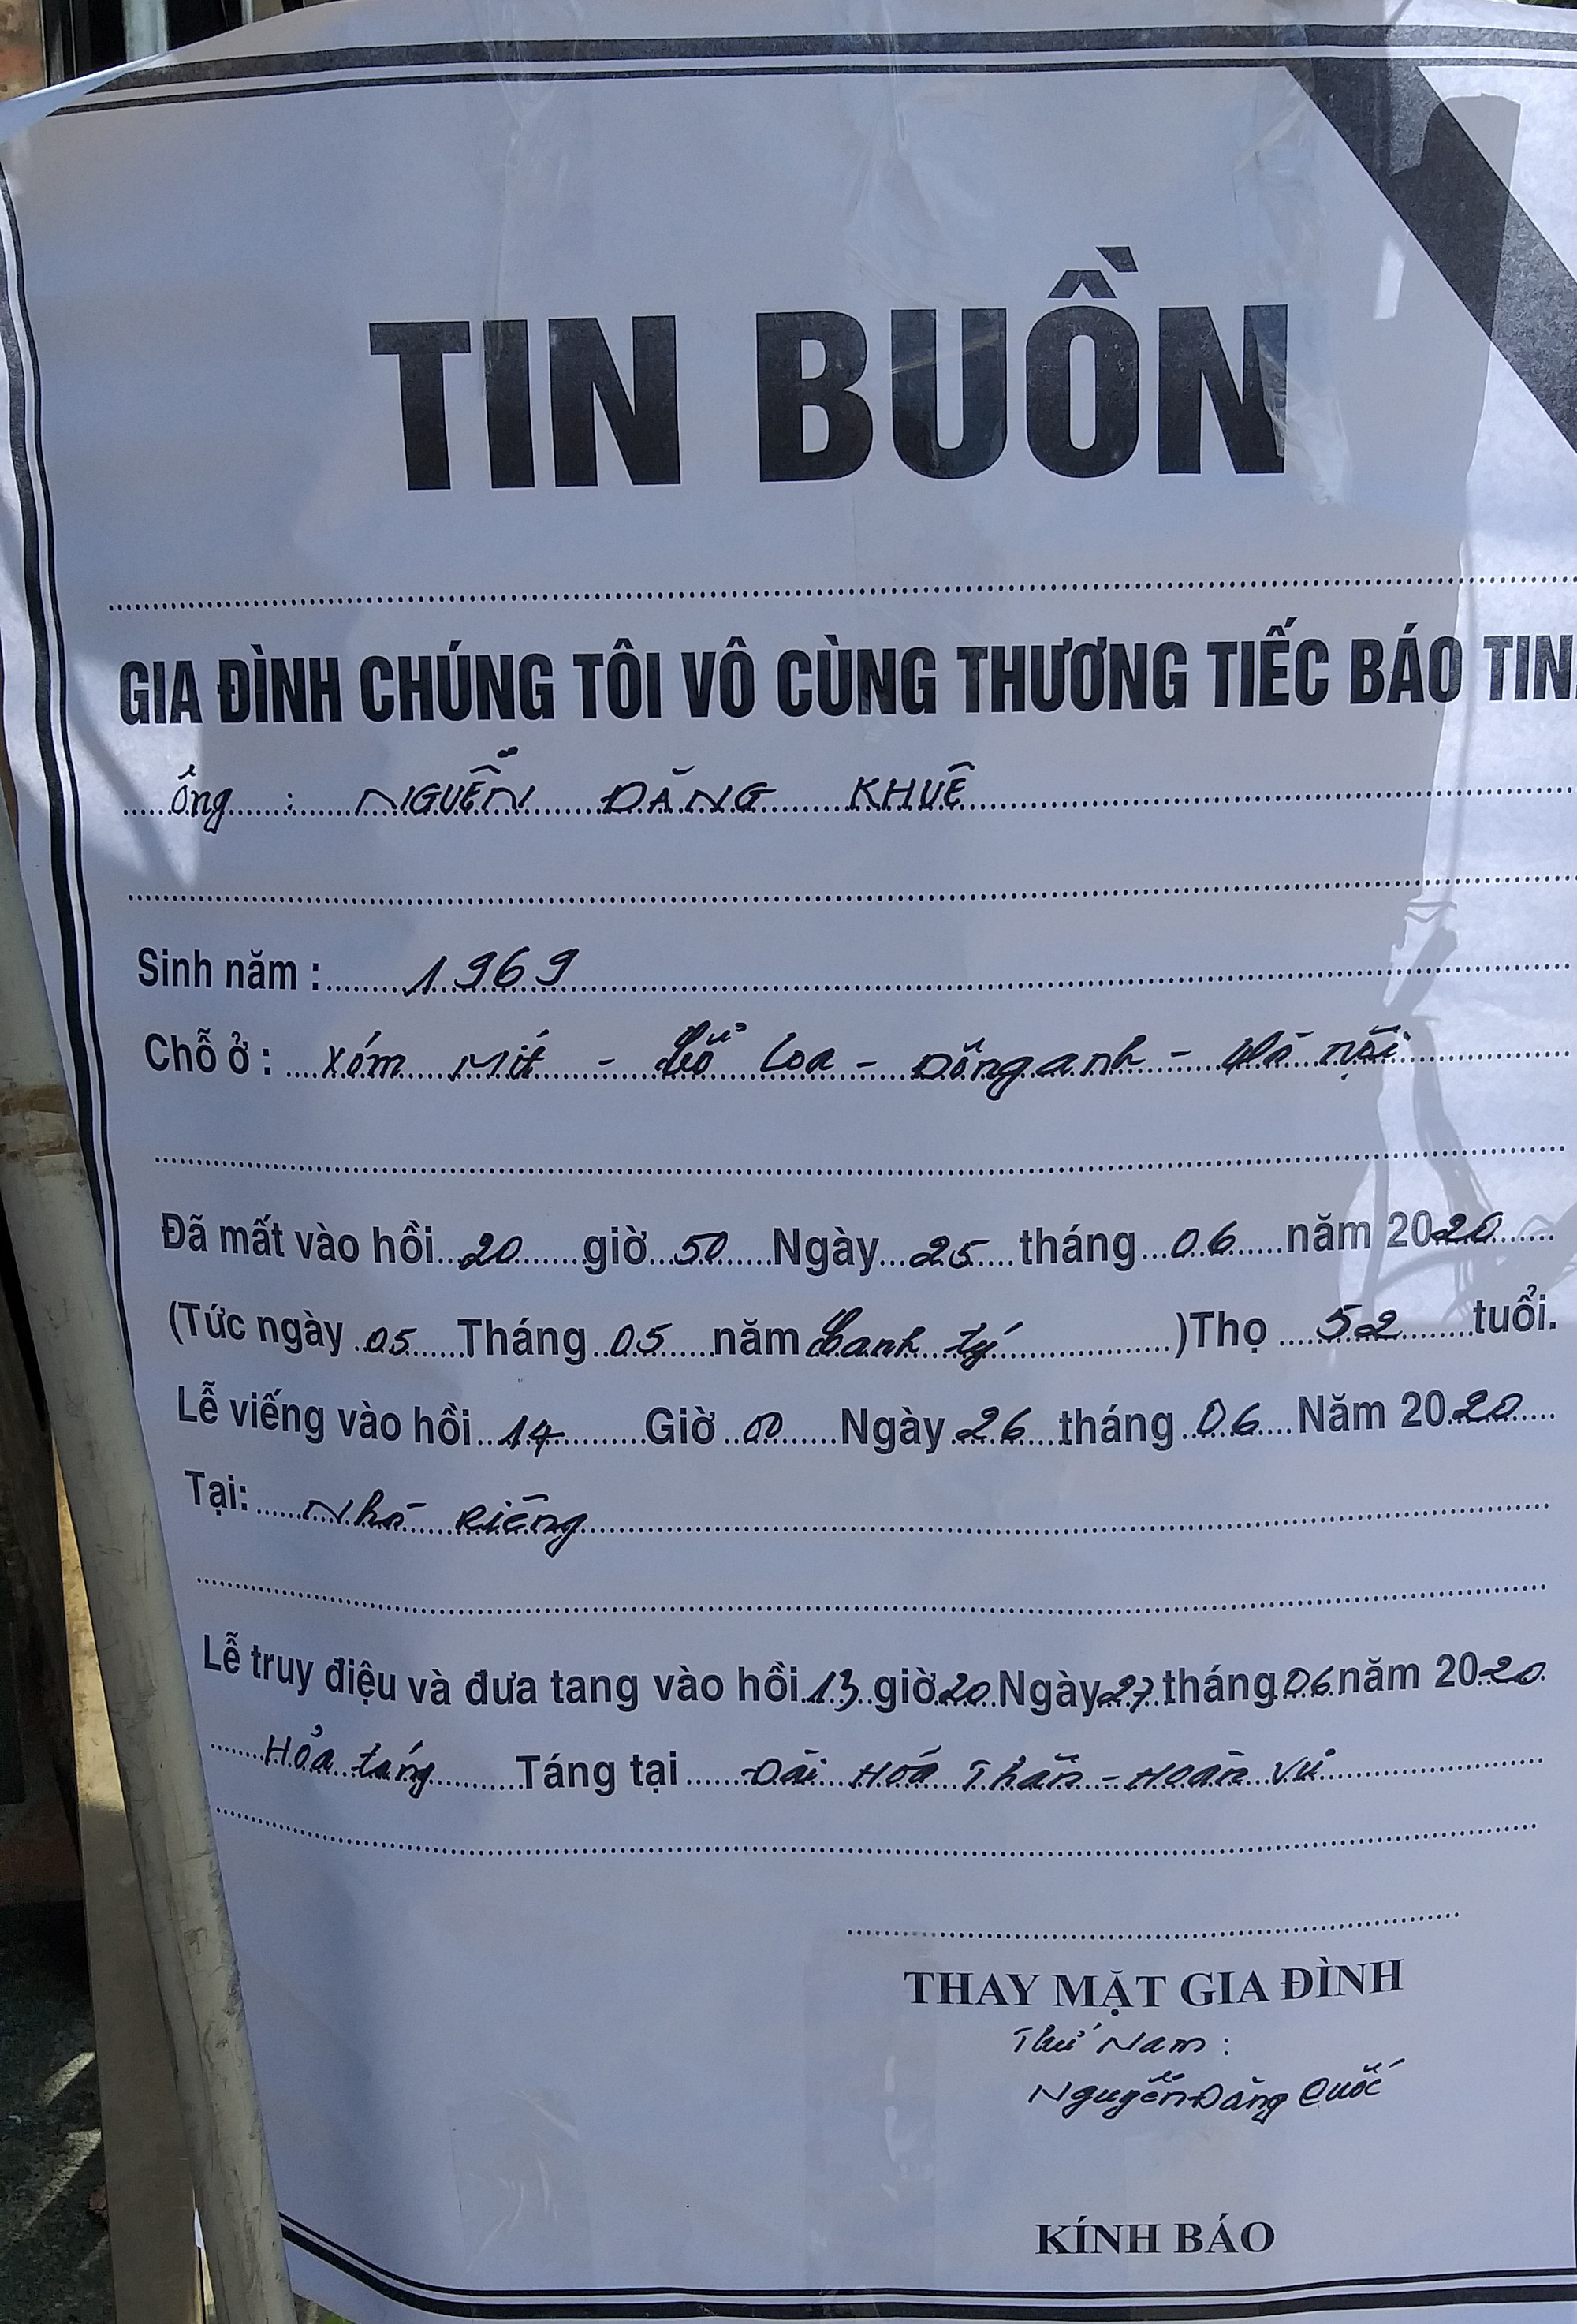 TIN BUỒN
GIA ĐÌNH CHÚNG TÔI VÔ CÙNG THƯƠNG TIẾC BÁO TIN
Ông : NGUỄN ĐĂNG KHUÊ
Sinh năm : 1969
Chỗ ở : Xóm Mít - Cổ Loa - Đông anh - Hà nội
Đã mất vào hồi 20 giờ 50 Ngày 25 tháng 06 năm 2020
(Tức ngày 05 Tháng 05 năm Canh tý )Thọ 52 tuổi.
Lễ viếng vào hồi 14 Giờ 00 Ngày 26 tháng 06 Năm 2020
Tại: Nhà Riêng
Lễ truy điệu và đưa tang vào hồi 13 giờ 20 Ngày 27 tháng 06 năm 2020
Hỏa táng Táng tại Đài Hóa Thân - Hoàn Vũ
THAY MẶT GIA ĐÌNH
Thứ Nam :
Nguyễn Đăng Quốc
KÍNH BÁO